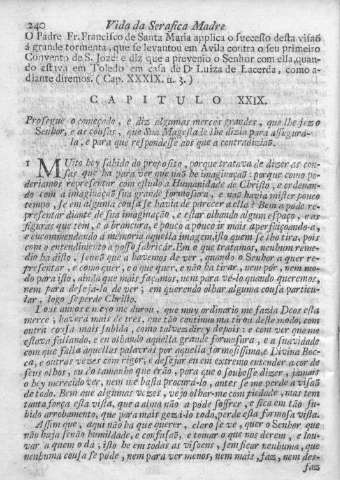 240 Vida da Serafica Madre
O Padre Fr. Francisco de Santa Maria applica o successo desta visaõ
á grande tormenta, que se levantou em Avila contra o seu primeiro
Convento de S. Jozé: e diz que a prevenio o Senhor com ella, quan-
do estiva em Toledo em casa de D. Luiza de Lacerda, como a-
diante diremos. ( Cap. XXXIX. n. 3. )
CAPITULO XXIX.
Prosegue o começado, e diz algumas mercés grandes, que lhe fez o
Senhor, e as cousas, que Sua Magestade lhe dizia para assegurá-
la, e para que respondesse aos que a contradiziaõ.
1 MUito hey sahido do proposito, porque tratava de dizer as cou-
sas que ha para ver que naõ he imaginaçaõ: porque como po-
deriamos representar com estudo a Humanidade de Christo, e ordenan-
do com a imaginaçaõ sua grande fermosura, e naõ havia mister pouco
tempo, se em alguma cousa se havia de parecer a ella? Bem a póde re-
presentar diante de sua imaginaçaõ, e estar olhando algum espaço, e as
figuras que tem, e a brancura, e pouco a pouco ir mais aperfeiçoando-a,
e encommendando á memoria aquella imagem. Isto quem se lho tira, pois
com o entendimento a posso fabricar. Em o que tratamos, nenhum reme-
dio ha disto, senaõ que a havemos de ver, quando o Senhor a quer re-
presentar, e como quer, e o que quer, e naõ ha tirar, nem pôr, nem mo-
do para isso, ainda que mais façamos, nem para vê-lo quando queremos,
nem para deixá-la de ver; em querendo olhar alguma cousa particu-
lar, logo se perde Christo.
Dous annos e meyo me durou, que muy ordinario me fazia Deos esta
mercê, haverá mais de tres, que taõ continuo ma tirou deste modo, com
outra cousa mais subida, como talvez direy depois: e com ver que me
estava fallando, e eu olhando aquella grande fermosura, e a suavidade
com que falla aquellas palavras por aquella fermosissima e Divina Boc-
ca, e outras vezes com rigor, e desejar eu em extremo entender a cor de
seus olhos, ou do tamanho que eraõ, para que o soubesse dizer, jámais
o hey merecido ver, nem me basta procurá-lo, antes se me perde a visaõ
de todo. Bem que algumas vezes, vejo olhar-me com piedade, mas tem
tanta força esta vista, que a alma naõ a póde soffrer, e fica em taõ su-
bido arrobamento, que para mais gozá-lo todo, perde esta fermosa vista.
Assim que, aqui naõ ha que querer, claro se vê, quer o Senhor que
naõ haja senaõ humildade, e confusaõ, e tomar o que nos derem, e lou-
var a quem o dá, isto he em todas as visoens, sem ficar nenhuma, que
nenhuma cousa se póde, nem para ver menos, nem mais, faz, nem des-
faz